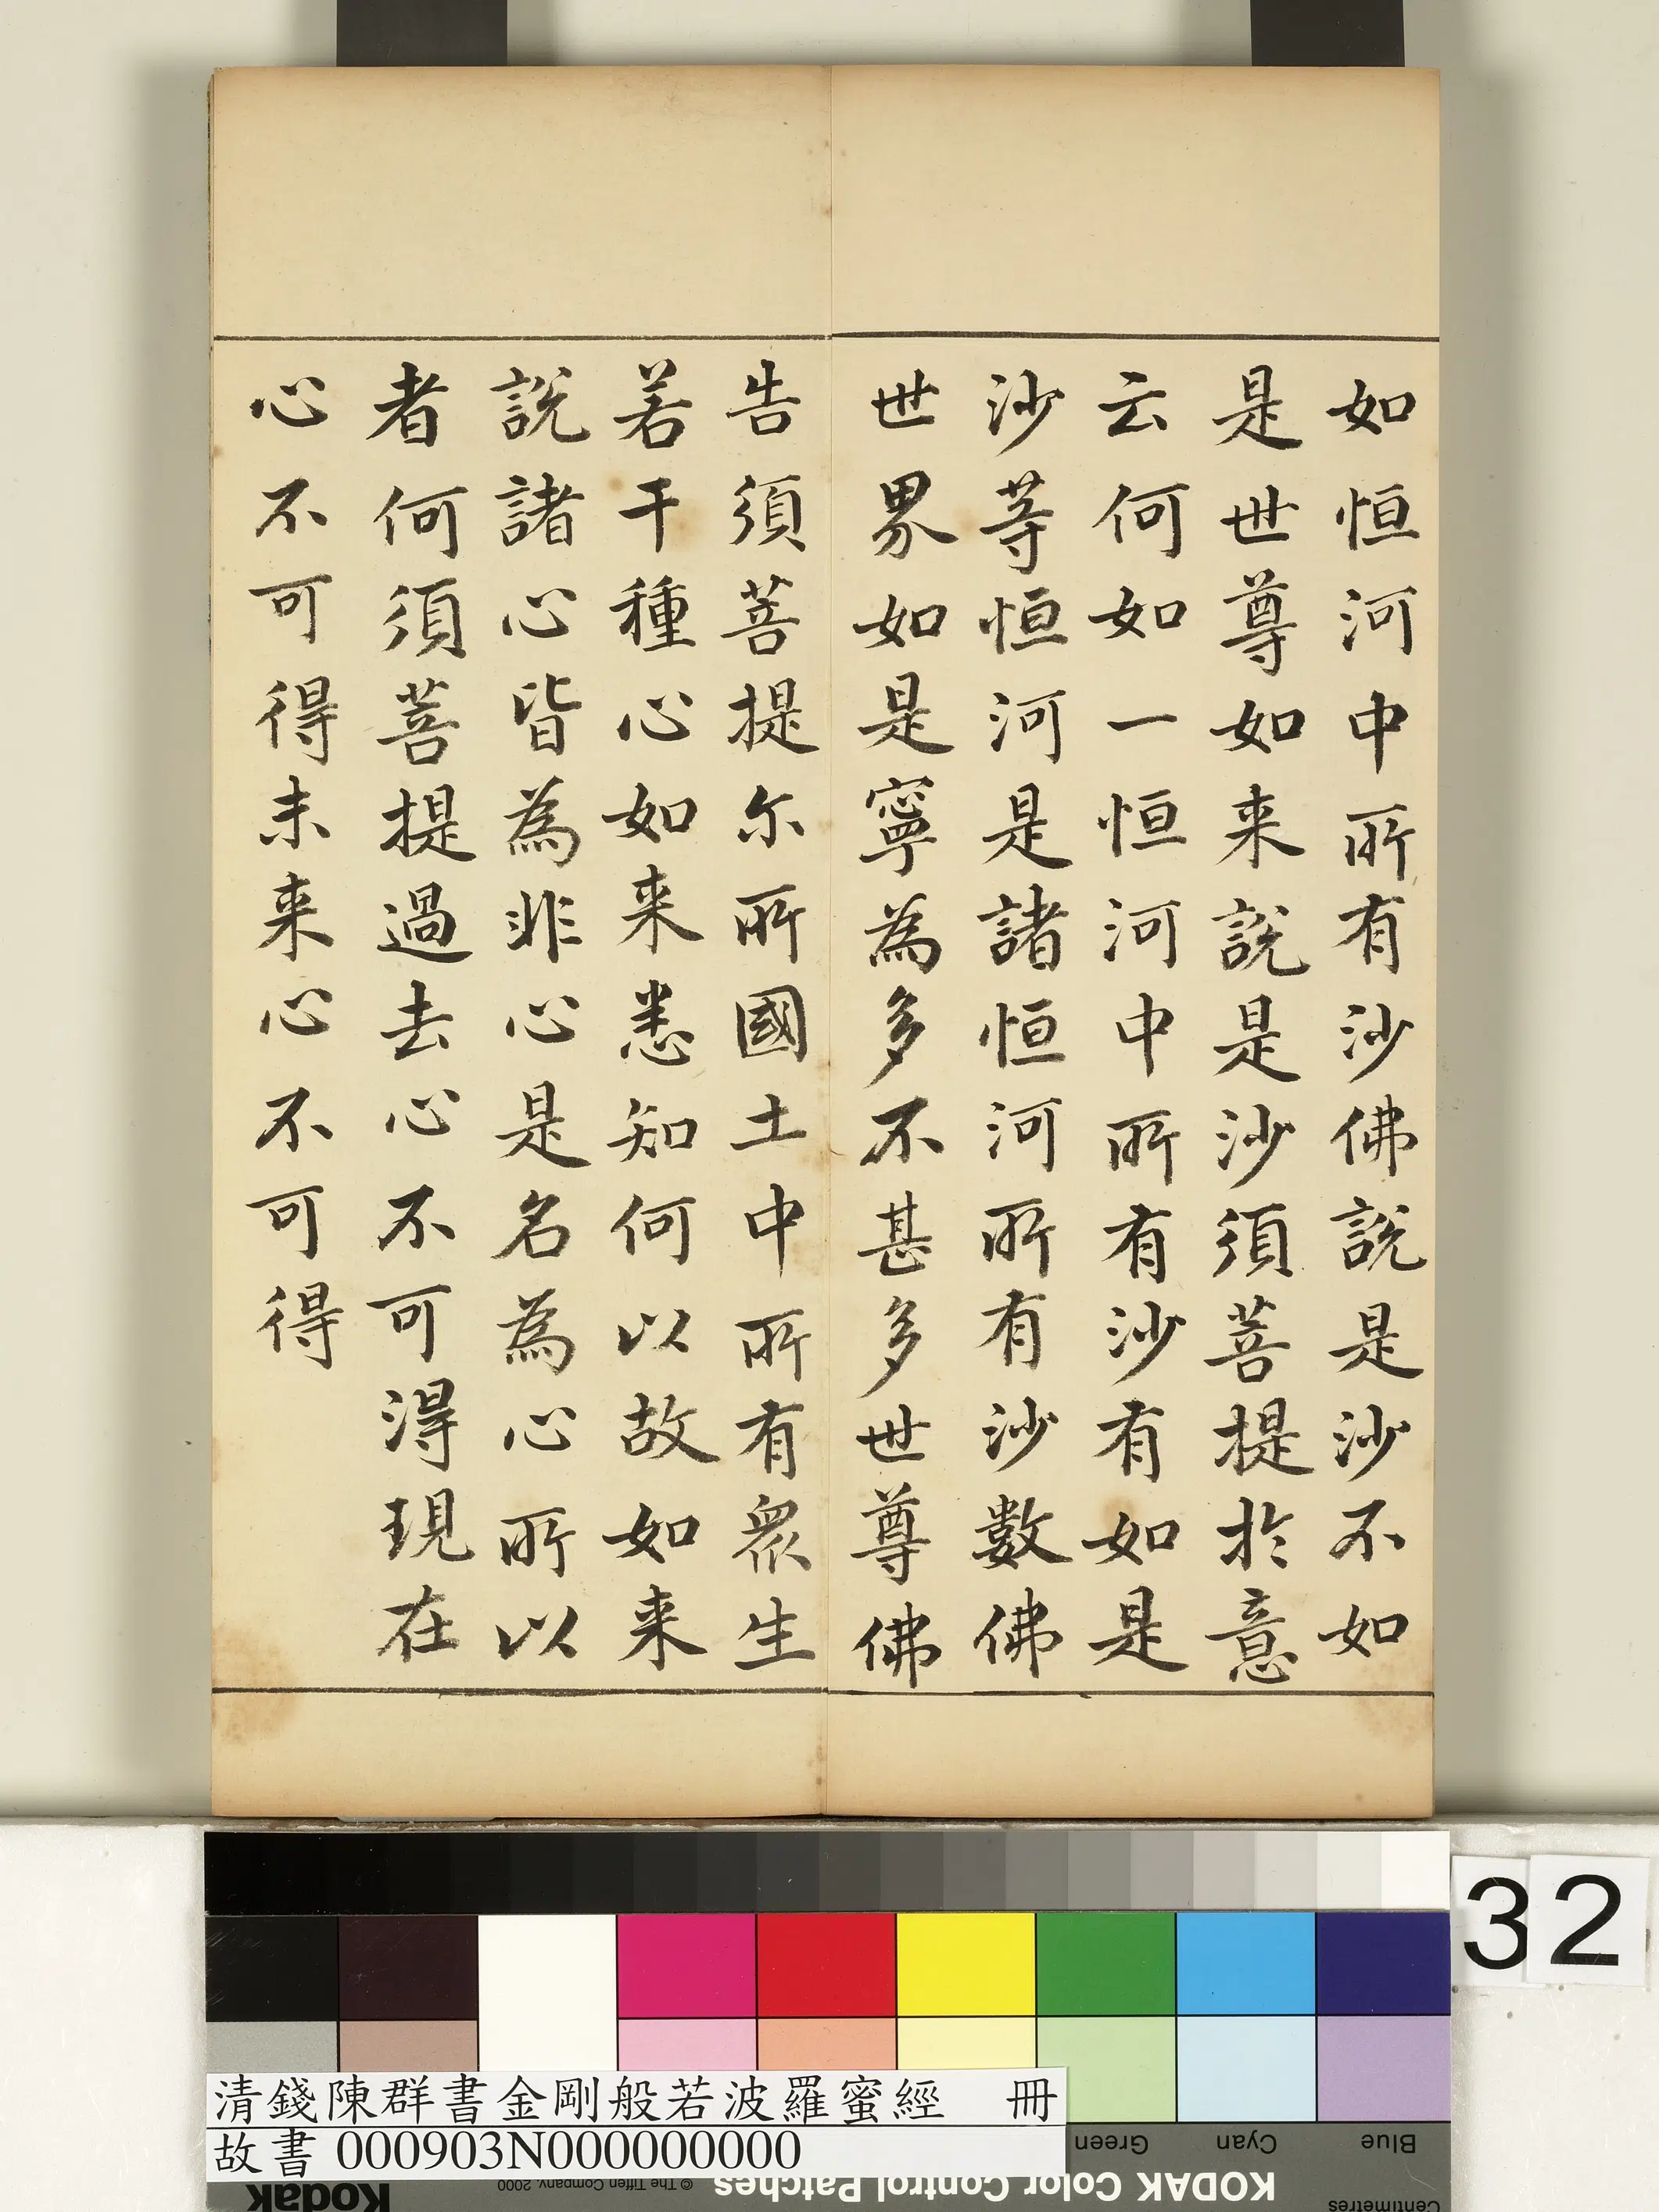 如恒河中所有沙佛說是沙不如
是世尊如来說是沙須菩提於意
云何如一恒河中所有沙有如是
沙等恒河是諸恒河所有沙數佛
世界如是寧為多不甚多世尊佛
告須菩提尔所國土中所有衆生
若干種心如来悉知何以故如来
說諸心皆為非心是名為心所以
者何須菩提過去心不可得現在
心不可得未来心不可得
32
清錢陳群書金剛般若波羅蜜經 冊
故書 000903N000000000
Green Cyan Blue
KODAK Color Control Patches
© The Tiffen Company, 2000
Kodak
Centimetres